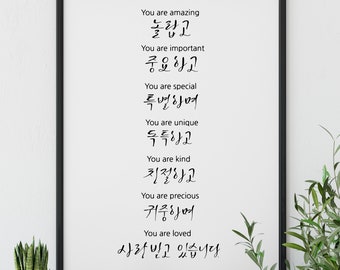 You are amazing
놀랍고
You are important
중요하고
You are special
특별하며
You are unique
독특하고
You are kind
친절하고
You are precious
귀중하며
You are loved
사랑받고 있습니다